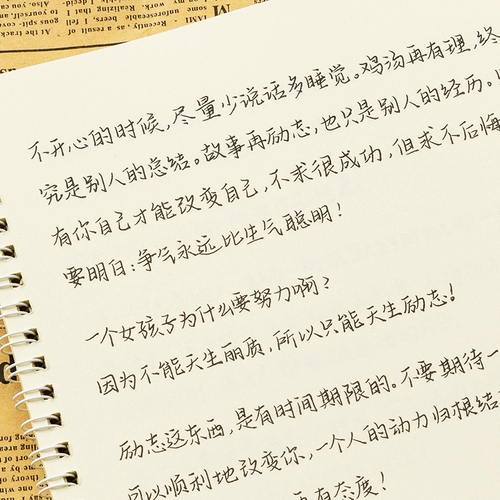 不开心的时候,尽量少说话多睡觉。鸡汤再有理,终
究是别人的总结。故事再励志,也只是别人的经历。
有你自己才能改变自己,不求很成功,但求不后悔
要明白:争气永远比生气聪明!
一个女孩子为什么要努力啊?
因为不能天生丽质,所以只能天生励志!
励志这东西,是有时间期限的。不要期待一
可以顺利地改变你,一个人的动力归根结
有态度!